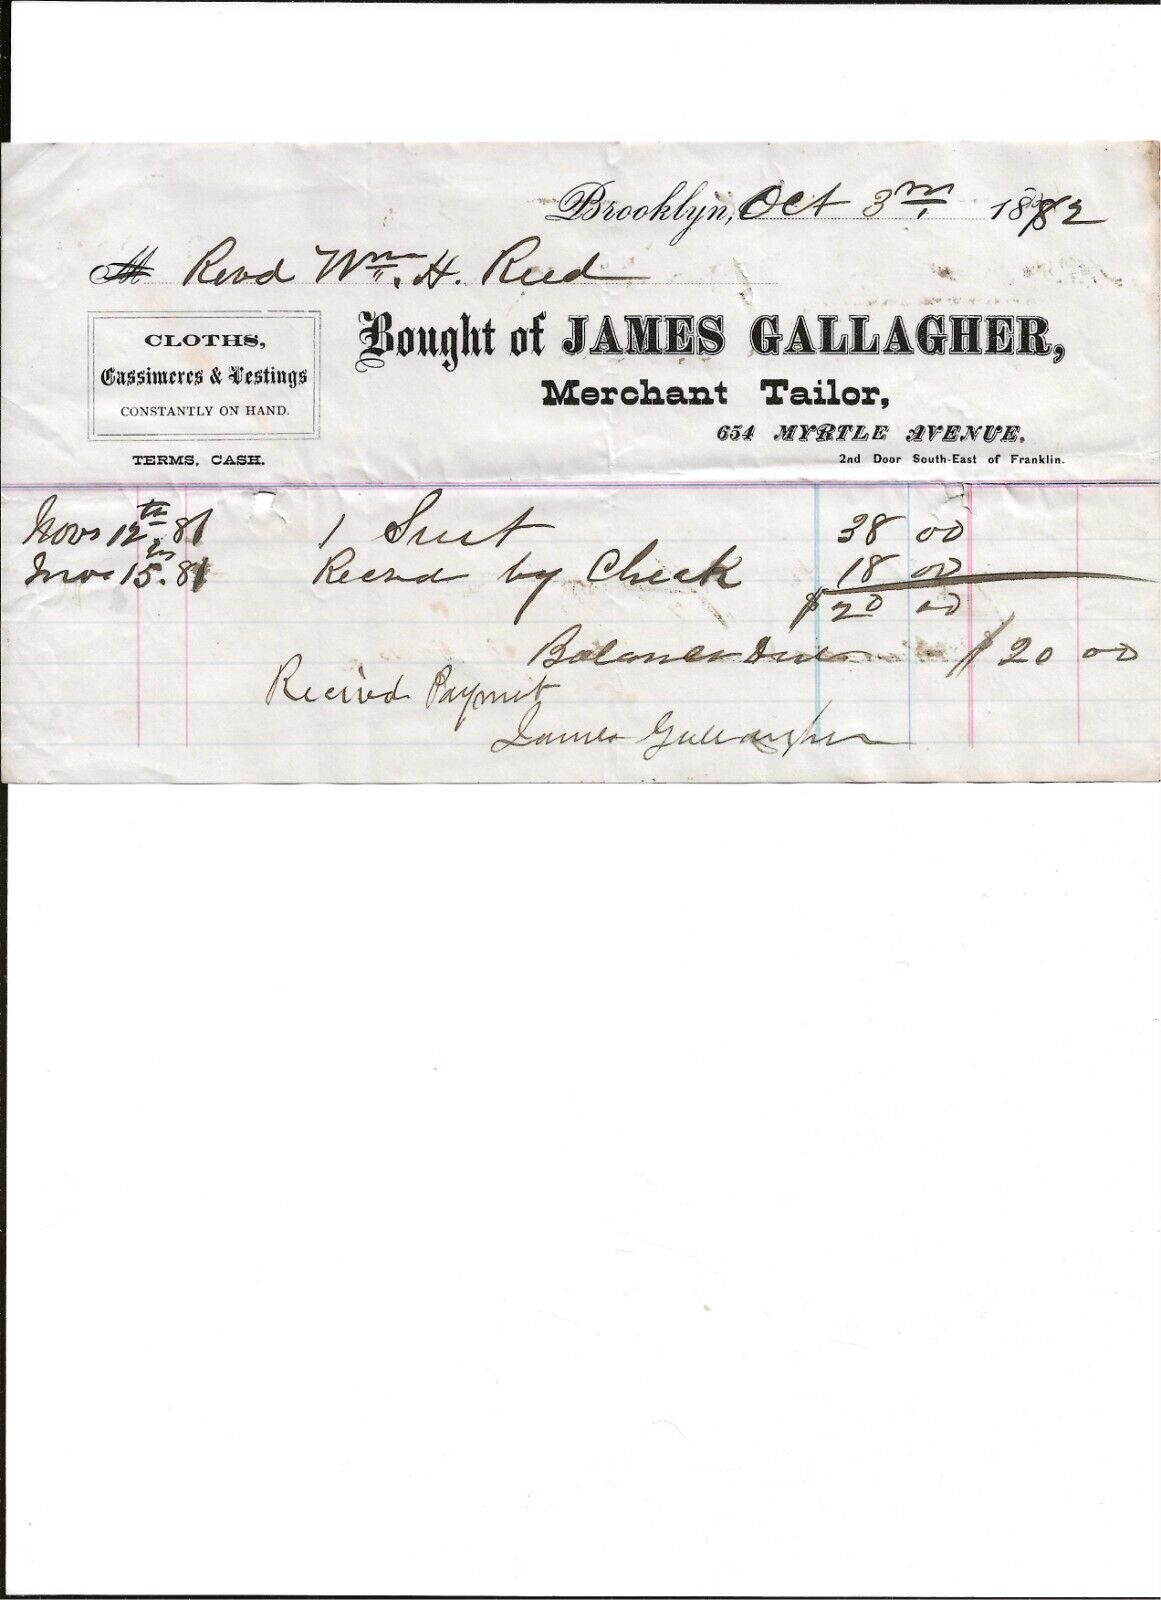 Brooklyn, Oct 3rd, 1882
M Revd Wm. H. Reed
CLOTHS,
Cassimeres & Vestings
CONSTANTLY ON HAND.
TERMS, CASH.
Bought of JAMES GALLAGHER,
Merchant Tailor,
654 MYRTLE AVENUE.
2nd Door South-East of Franklin.
12th 81 1 Suit 38 00
15. 81 by Check 18 00
$20 00
Balance Due $20 00
Received Paymet
James Gallaugher